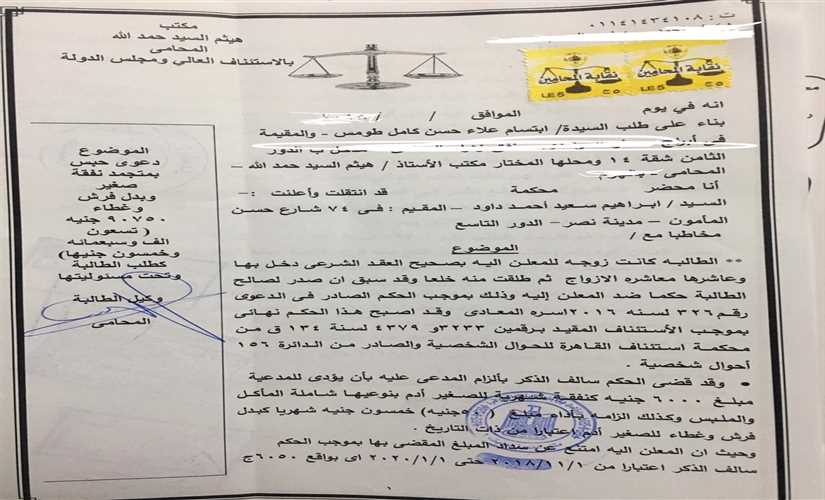 ت : ٠١١٤١٤٣٤١٠٨
مكتب
هيثم السيد حمد الله
المحامى
بالاستئناف العالي ومجلس الدولة
نقابة المحامين
LE5 ج٥
نقابة المحامين
LE5 ج٥
انه في يوم الموافق / /
بناء على طلب السيدة/ ابتسام علاء حسن كامل طومس - والمقيمة
فى أبراج
الثامن شقة ١٤ ومحلها المختار مكتب الأستاذ / هيثم السيد حمد الله –
المحامى
أنا محضر محكمة قد انتقلت وأعلنت :-
السيد / ابراهيم سعيد أحمد داود – المقيم : فى ٧٤ شارع حسن
المأمون – مدينة نصر- الدور التاسع
مخاطبا مع /
الموضوع
** الطالبه كانت زوجه للمعلن اليه بصحيح العقد الشرعى دخل بها
وعاشرها معاشره الازواج ثم طلقت منه خلعا وقد سبق ان صدر لصالح
الطالبة حكما ضد المعلن إليه وذلك بموجب الحكم الصادر فى الدعوى
رقم ٣٢٦ لسنه ٢٠١٦ اسره المعادى وقد اصبح هذا الحكم نهائى
بموجب الأستئناف المقيد برقمين ٣٢٣٣و ٤٣٧٩ لسنة ١٣٤ ق من
محكمة استئناف القاهرة للحوال الشخصية والصادر من الدائرة ١٥٦
أحوال شخصية .
• وقد قضى الحكم سالف الذكر بألزام المدعى عليه بأن يؤدى للمدعية
مبلغ ٦٠٠٠ جنيه كنفقة شهرية للصغير أدم بنوعيها شاملة المأكل
والملبس وكذلك الزامه بأداء مبلغ ( جنيه) خمسون جنيه شهريا كبدل
فرش وغطاء للصغير أدم اعتبارا من ذات التاريخ .
وحيث ان المعلن اليه امتنع عن سداد المبلغ المقضى بها بموجب الحكم
سالف الذكر اعتبارا من ٢٠١٨/١١/١ حتى ٢٠٢٠/١/١ اى بواقع ٦٠٥٠ج
١
الموضوع
دعوى حبس
بمتجمد نفقة
صغير
وبدل فرش
وغطاء
٩٠٧٥٠ جنيه
( تسعون
الف وسبعمائه
وخمسون جنيها)
كطلب الطالبة
وتحت مسئوليتها
وكيل الطالبة
المحامى